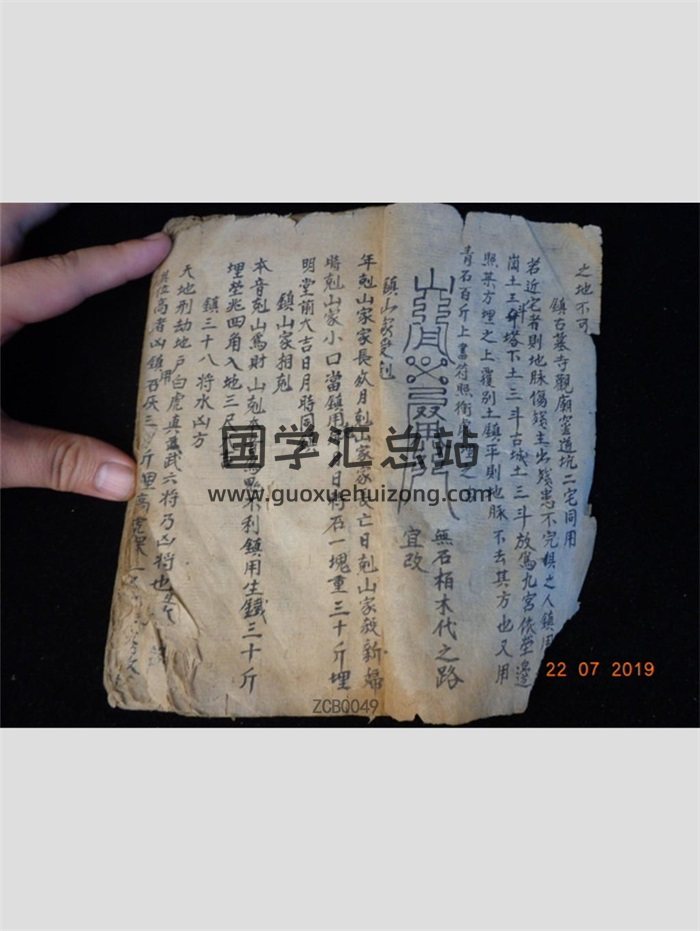 之地不可
鎮古墓寺觀廟窑道坑二宅同用
若近宅者則地脉傷殘主出殘患不完俱之人鎮用
崗土三斗塔下土三斗古城土三斗放爲九宮依塋邊
照某方埋之上覆別土鎮平則地脉不去其方也又用
青石百斤上書符照衝處埋之
無石栢木代之路
宜改
鎮山家受剋
年剋山家家長 月剋山家家長亡日剋山家殺新婦
時剋山家小口當鎮用 月日時石一塊重三十斤埋
明堂前大吉日月時同
鎮山家相剋
本音剋山爲財山剋 不利鎮用生鐵三十斤
埋塋兆四角入地三尺
鎮三十八將水凶方
天地刑劫地戶白虎眞 武六將乃凶將也
位高者凶鎮用石灰三 斤埋高
国学汇总站
www.guoxuehuizong.com
22 07 2019
ZCBQ049